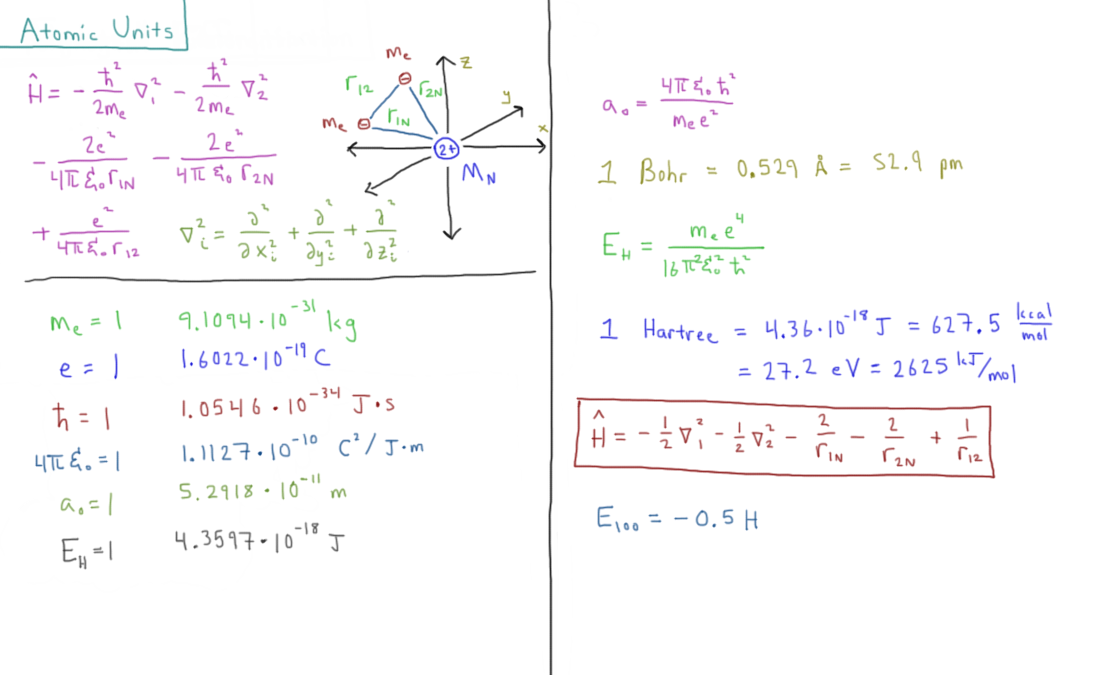 Atomic Units
Ĥ = - ħ²/2mₑ ∇₁² - ħ²/2mₑ ∇₂²
- 2e²/4πε₀r₁N - 2e²/4πε₀r₂N
+ e²/4πε₀r₁₂ ∇ᵢ² = ∂²/∂xᵢ² + ∂²/∂yᵢ² + ∂²/∂zᵢ²
mₑ
z
r₁₂ r₂N
y
mₑ r₁N
x
2+
M_N
mₑ = 1 9.1094·10⁻³¹ kg
e = 1 1.6022·10⁻¹⁹ C
ħ = 1 1.0546·10⁻³⁴ J·s
4πε₀ = 1 1.1127·10⁻¹⁰ C²/J·m
a₀ = 1 5.2918·10⁻¹¹ m
E_H = 1 4.3597·10⁻¹⁸ J
a₀ = 4πε₀ħ²/mₑe²
1 Bohr = 0.529 Å = 52.9 pm
E_H = mₑe⁴/16π²ε₀²ħ²
1 Hartree = 4.36·10⁻¹⁸ J = 627.5 kcal/mol
= 27.2 eV = 2625 kJ/mol
Ĥ = - 1/2 ∇₁² - 1/2 ∇₂² - 2/r₁N - 2/r₂N + 1/r₁₂
E₁₀₀ = -0.5 H